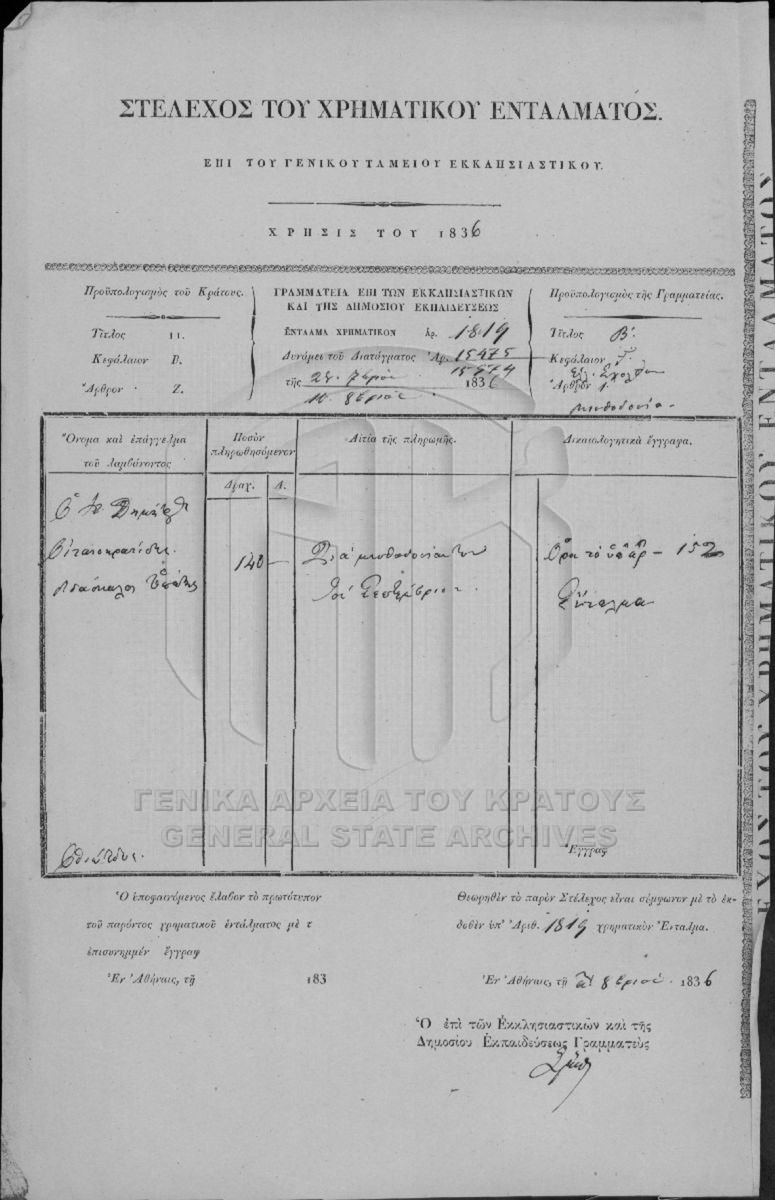 ΣΤΕΛΕΧΟΣ ΤΟΥ ΧΡΗΜΑΤΙΚΟΥ ΕΝΤΑΛΜΑΤΟΣ.
ΕΠΙ ΤΟΥ ΓΕΝΙΚΟΥ ΤΑΜΕΙΟΥ ΕΚΚΛΗΣΙΑΣΤΙΚΟΥ.
ΧΡΗΣΙΣ ΤΟΥ 1836
Προϋπολογισμὸς τοῦ Κράτους.
Τίτλος ΙΙ.
Κεφάλαιον Β.
Ἄρθρον Ζ.
ΓΡΑΜΜΑΤΕΙΑ ΕΠΙ ΤΩΝ ΕΚΚΛΗΣΙΑΣΤΙΚΩΝ
ΚΑΙ ΤΗΣ ΔΗΜΟΣΙΟΥ ΕΚΠΑΙΔΕΥΣΕΩΣ
ΕΝΤΑΛΜΑ ΧΡΗΜΑΤΙΚΟΝ Ἀρ. 1819
Δυνάμει τοῦ Διατάγματος Ἀρ. 15475
15974
τῆς 25. 7βρίου 1836
10. 8βρίου
Προϋπολογισμὸς τῆς Γραμματείας.
Τίτλος Β΄.
Κεφάλαιον Γ.
Ἑλ. Σχολεῖον
Ἄρθρον 1.
μισθοδοσία.
Ὄνομα καὶ ἐπάγγελμα
τοῦ λαμβάνοντος
Ποσὸν
πληρωθησόμενον
Δραχ. Λ.
Αἰτία τῆς πληρωμῆς.
Δικαιολογητικὰ ἔγγραφα.
140 —
Διὰ μισθοδοσίαν του
Σεπτεμβρίου.
Ὅρα τὸ ὑπ' ἀρ — 152
Ἔνταλμα
Ἔγγραφ
ΓΕΝΙΚΑ ΑΡΧΕΙΑ ΤΟΥ ΚΡΑΤΟΥΣ
GENERAL STATE ARCHIVES
Ὁ ὑποφαινόμενος ἔλαβον τὸ πρωτότυπον
τοῦ παρόντος χρηματικοῦ ἐντάλματος μὲ τ
ἐπισυνημμέν ἔγγραφ
Ἐν Ἀθήναις, τῇ 183
Θεωρηθὲν τὸ παρὸν Στέλεχος εἶναι σύμφωνον μὲ τὸ ἐκ-
δοθὲν ὑπ' Ἀριθ. 1819 χρηματικὸν Ἔνταλμα.
Ἐν Ἀθήναις, τῇ 8βρίου 1836
Ὁ ἐπὶ τῶν Ἐκκλησιαστικῶν καὶ τῆς
Δημοσίου Ἐκπαιδεύσεως Γραμματεὺς